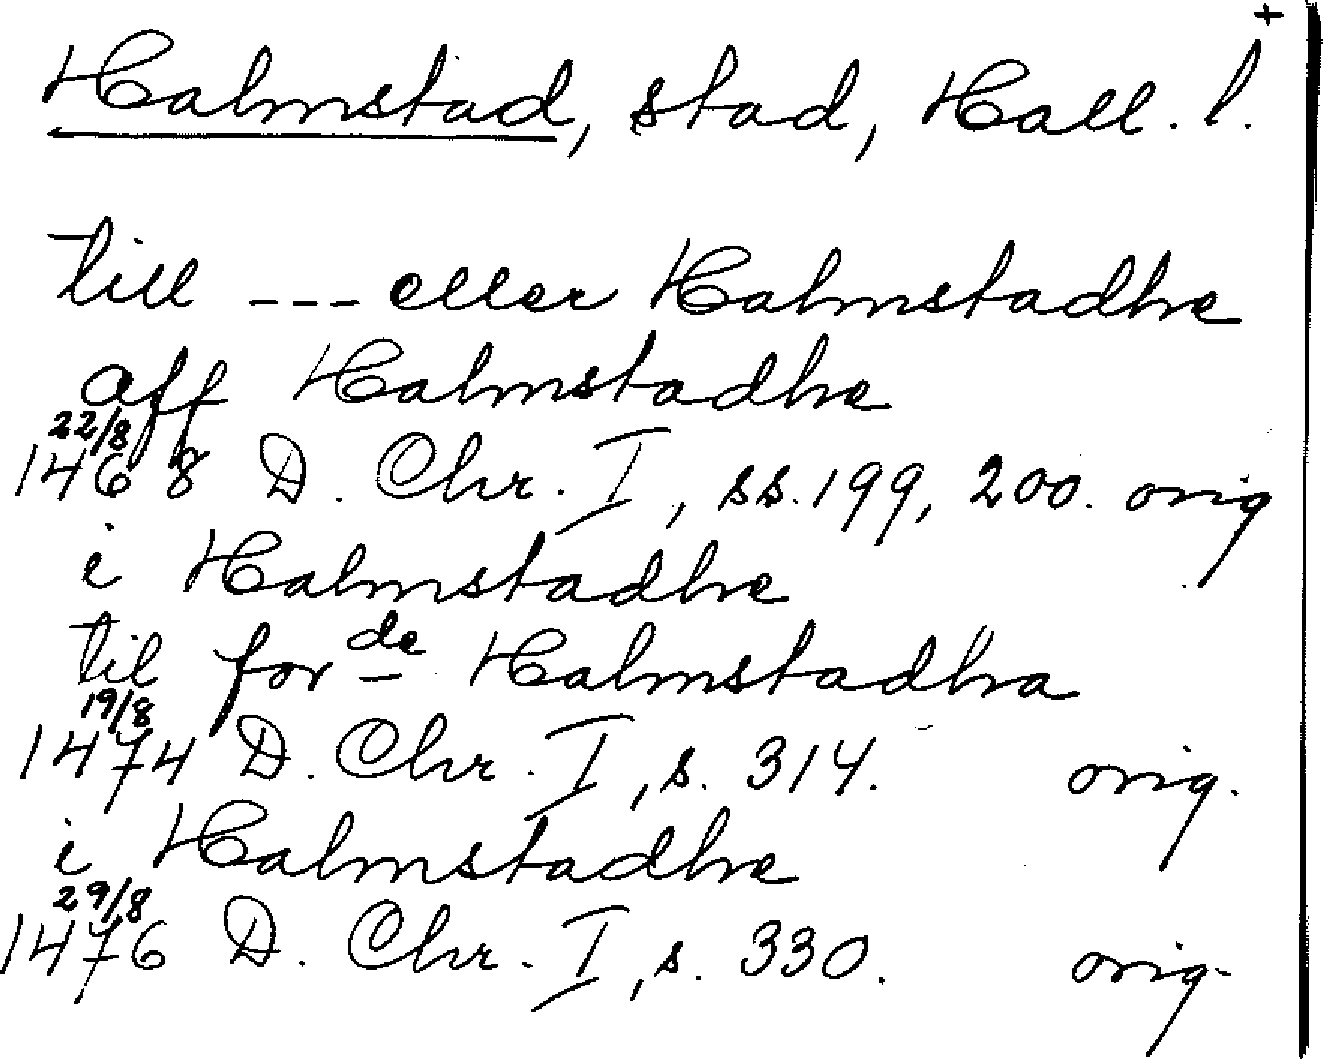 +
Halmstad, stad, Hall. l.
till --- eller Halmstadhe
aff Halmstadhe
22/8
1468 D. Chr. I, ss. 199, 200. orig
i Halmstadhe
til forde Halmstadha
19/8
1474 D. Chr. I, s. 314. orig.
i Halmstadhe
29/8
1476 D. Chr. I, s. 330. orig.